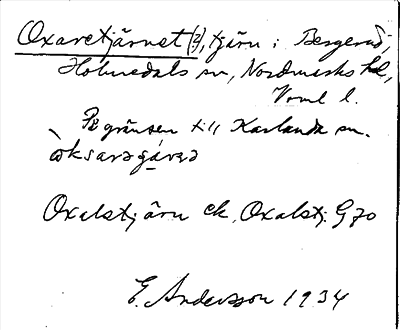 Oxaretjärnet (?), tjärn i Bergerud,
Holmedals sn, Nordmarks hd,
Vrml l.
På gränsen till Karlanda sn.
Oxalstjärn ek, Oxalstj. G70
E. Andersson 1934